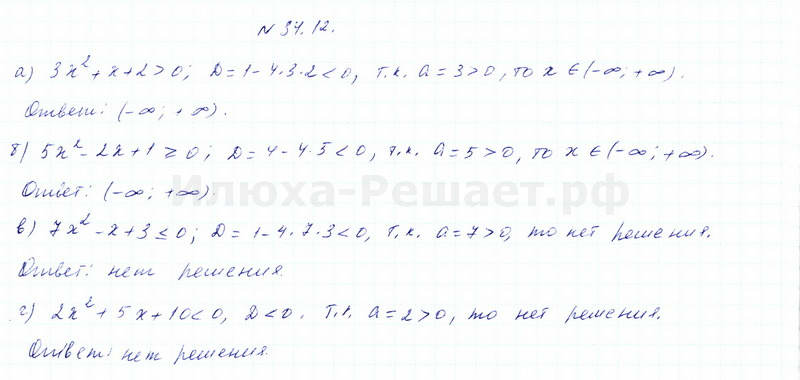 N 34.12.
а) 3x² + x + 2 > 0; D = 1 - 4·3·2 < 0, т.к. a = 3 > 0, то x ∈ (-∞; +∞).
Ответ: (-∞; +∞).
б) 5x² - 2x + 1 ≥ 0; D = 4 - 4·5 < 0, т.к. a = 5 > 0, то x ∈ (-∞; +∞).
Ответ: (-∞; +∞).
Илюха-Решает.рф
в) 7x² - x + 3 ≤ 0; D = 1 - 4·7·3 < 0, т.к. a = 7 > 0, то нет решения.
Ответ: нет решения.
г) 2x² + 5x + 10 < 0, D < 0. т.к. a = 2 > 0, то нет решения.
Ответ: нет решения.